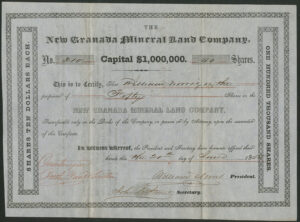 THE
New Granada Mineral Land Company.
No. Capital $1,000,000. Shares.
This is to Certify, that is the
proprietor of Fifty Shares in the
NEW GRANADA MINERAL LAND COMPANY,
Transferable only on the Books of the Company in person or by Attorney, upon the surrender
of this Certificate.
In Witness Whereof, the President and Secretary have hereunto affixed their
hands this 20th day of
President.
Secretary.
SHARES TEN DOLLARS EACH.
ONE HUNDRED THOUSAND SHARES.